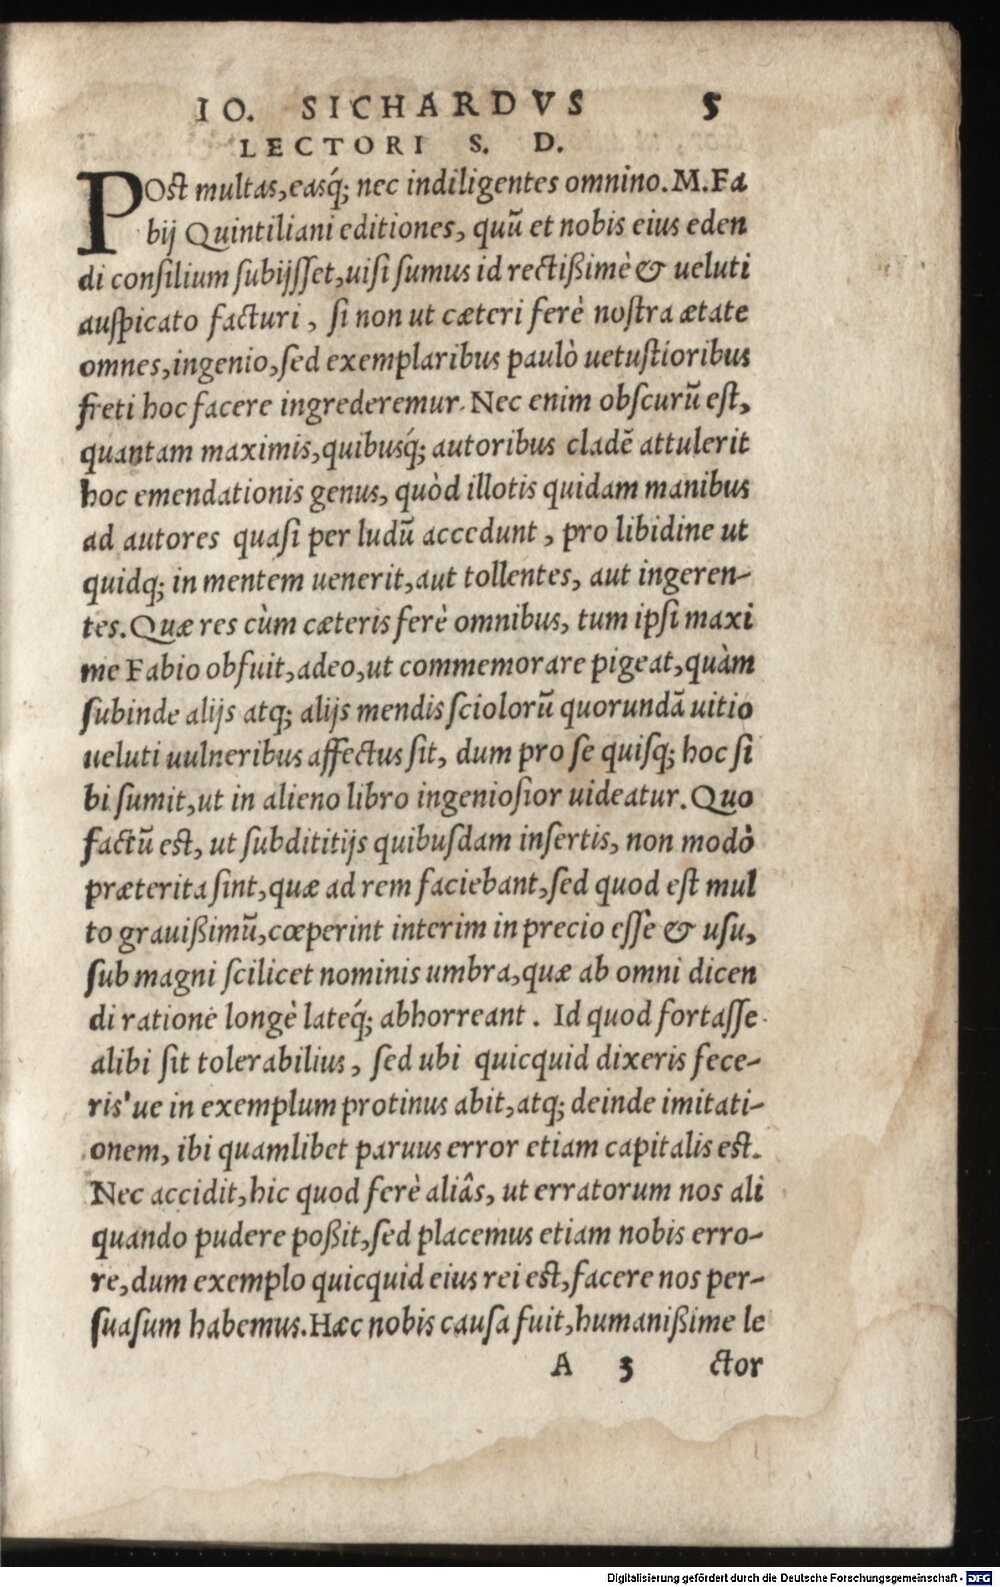 IO. SICHARDVS 5
LECTORI S. D.
POst multas, easq́; nec indiligentes omnino. M. Fa
bij Quintiliani editiones, quũ et nobis eius eden
di consilium subijsset, uisi sumus id rectißimè & ueluti
auspicato facturi, si non ut cæteri ferè nostra ætate
omnes, ingenio, sed exemplaribus paulò uetustioribus
freti hoc facere ingrederemur. Nec enim obscurũ est,
quantam maximis, quibusq́; autoribus cladẽ attulerit
hoc emendationis genus, quòd illotis quidam manibus
ad autores quasi per ludũ accedunt, pro libidine ut
quidq; in mentem uenerit, aut tollentes, aut ingeren-
tes. Quæ res cùm cæteris ferè omnibus, tum ipsi maxi
me Fabio obfuit, adeo, ut commemorare pigeat, quàm
subinde alijs atq; alijs mendis sciolorũ quorundã uitio
ueluti uulneribus affectus sit, dum pro se quisq; hoc si
bi sumit, ut in alieno libro ingeniosior uideatur. Quo
factũ est, ut subdititijs quibusdam insertis, non modò
præterita sint, quæ ad rem faciebant, sed quod est mul
to grauißimũ, cœperint interim in precio esse & usu,
sub magni scilicet nominis umbra, quæ ab omni dicen
di ratione longè lateq́; abhorreant. Id quod fortasse
alibi sit tolerabilius, sed ubi quicquid dixeris fece-
ris'ue in exemplum protinus abit, atq; deinde imitati-
onem, ibi quamlibet paruus error etiam capitalis est.
Nec accidit, hic quod ferè aliâs, ut erratorum nos ali
quando pudere poßit, sed placemus etiam nobis erro-
re, dum exemplo quicquid eius rei est, facere nos per-
suasum habemus. Hæc nobis causa fuit, humanißime le
A 3 ctor
Digitalisierung gefördert durch die Deutsche Forschungsgemeinschaft - DFG